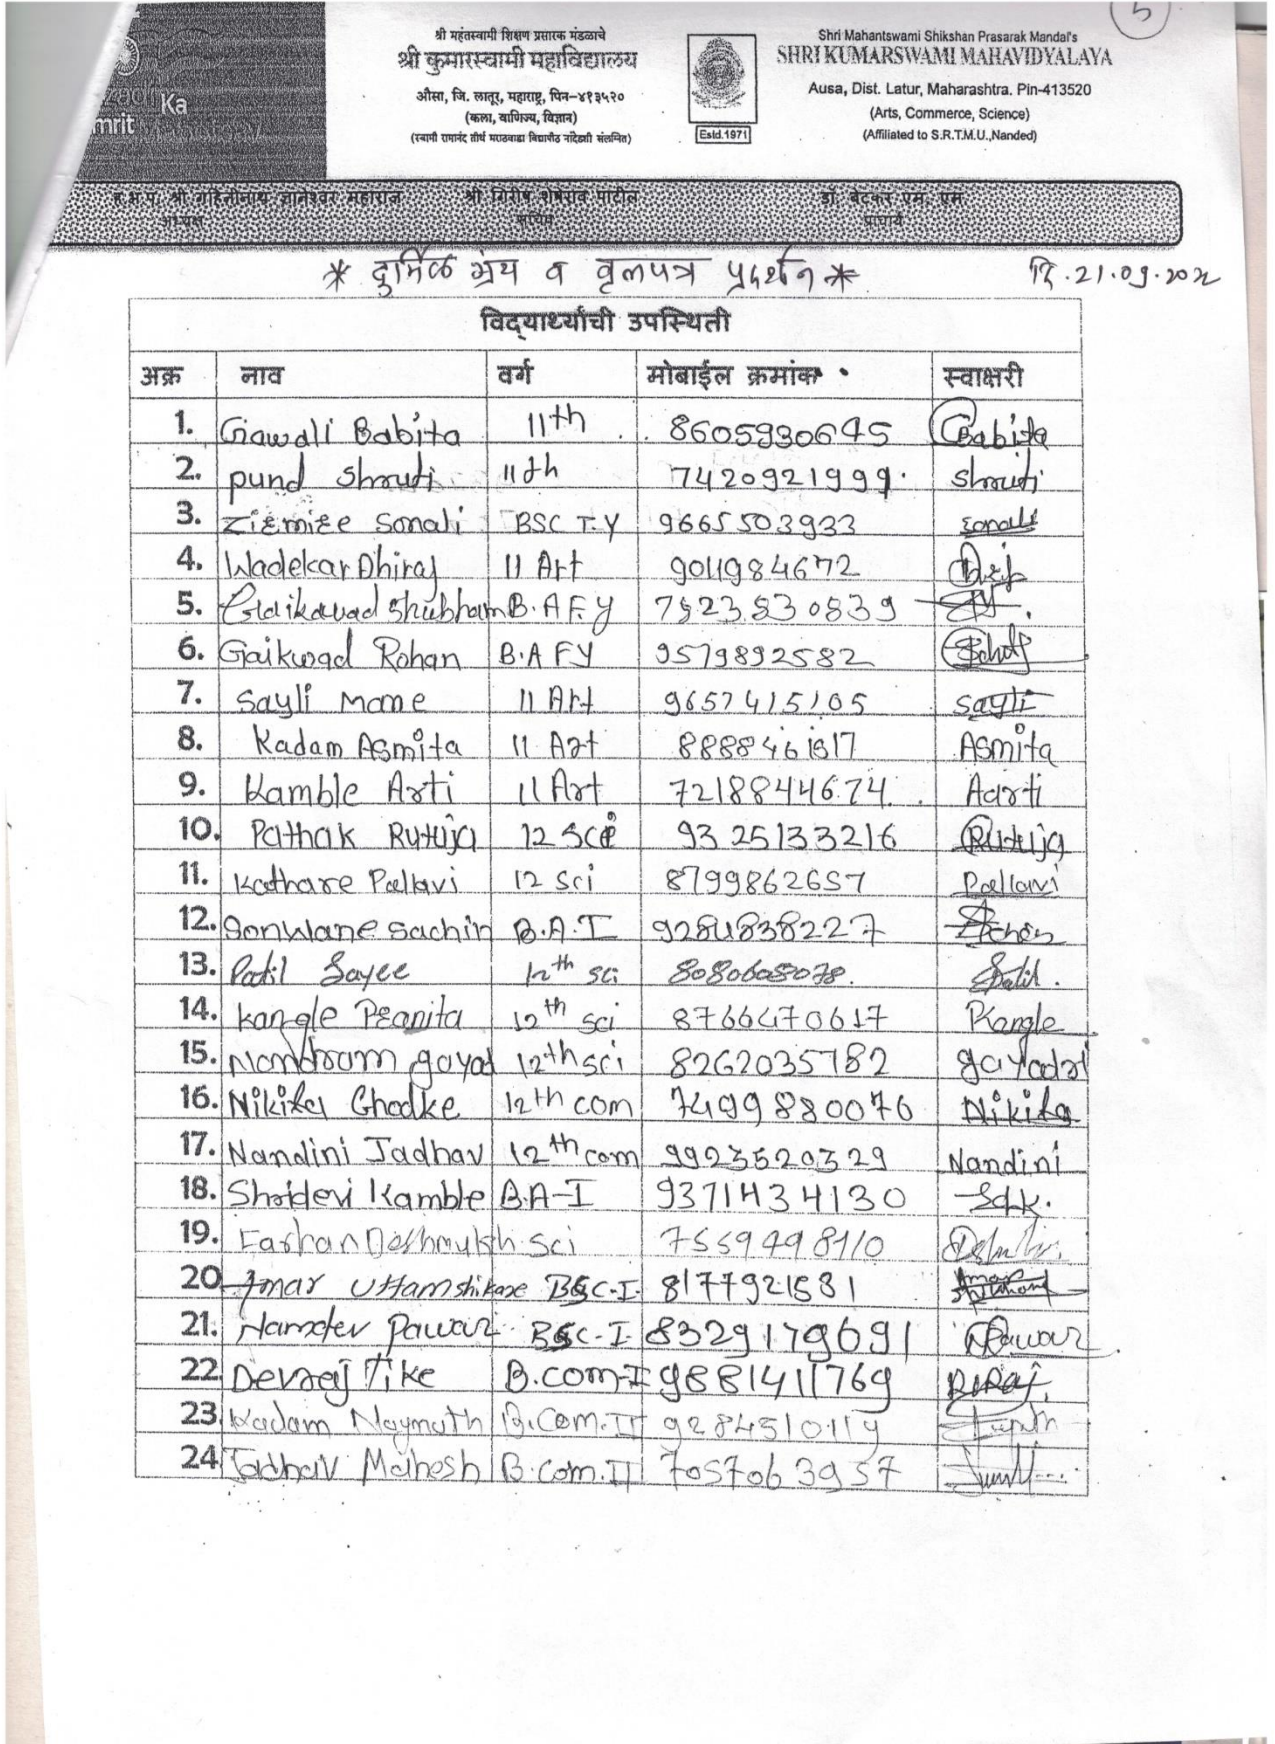 5
श्री महंतस्वामी शिक्षण प्रसारक मंडळाचे
श्री कुमारस्वामी महाविद्यालय
औसा, जि. लातूर, महाराष्ट्र, पिन-४१३५२०
(कला, वाणिज्य, विज्ञान)
(स्वामी रामानंद तीर्थ मराठवाडा विद्यापीठ नांदेडशी संलग्नित)
Estd.1971
Shri Mahantswami Shikshan Prasarak Mandal's
SHRI KUMARSWAMI MAHAVIDYALAYA
Ausa, Dist. Latur, Maharashtra. Pin-413520
(Arts, Commerce, Science)
(Affiliated to S.R.T.M.U.,Nanded)
Ka
mrit
ह.भ.प. श्री गहिनीनाथ ज्ञानेश्वर महाराज श्री गिरीष शेषराव पाटील डॉ. बेटकर एम. एम.
अध्यक्ष सचिव प्राचार्य
* दुर्मिळ ग्रंथ व वृत्तपत्र प्रदर्शन * दि.21.09.202
विद्यार्थ्यांची उपस्थिती
अक्र नाव वर्ग मोबाईल क्रमांक स्वाक्षरी
1. Gawali Babita 11th 8605930645 Babita
2. pund Shruti 11th 7420921999 Shruti
3. Sonali BSC T.Y 9665503933 Sonali
4. Wadekar Dhiraj 11 Art 9011984672
5. Gaikawad Shubham B.A F.Y 7523830839
6. Gaikwad Rohan B.A FY 9579892582
7. Sayli Mame 11 Art 9657415105 sayli
8. Kadam Asmita 11 Art 8888461817 Asmita
9. Kamble Arti 11 Art 7218844674 Aarti
10. Pathak Rutuja 12 Sci 9325133216 Rutuja
11. Kathare Pallavi 12 Sci 8799862657 Pallavi
12. Sonwane Sachin B.A.I 9284838227
13. Patil Sayee 12th sci 8080608078. Patil.
14. Kangle Pranita 12th sci 8766470617 PKangle
15. Nandram gayad 12th sci 8262035782 gayadri
16. Nikita Ghodke 12th com 7499880076 Nikita
17. Nandini Jadhav 12th com 9923520329 Nandini
18. Shridevi Kamble B.A-I 9371434130 Sdk.
19. Farhan Deshmukh Sci 7559498110
20. Amar Uttamshikare BSC-I 8177921581
21. Namdev Pawar BSC-I 8329179691 NPawar
22. Devraj Tike B.com-I 9881411769
23. Kadam Naymuth B.Com.II 9284510119
24. Jadhav Mahesh B.com.II 7057063957